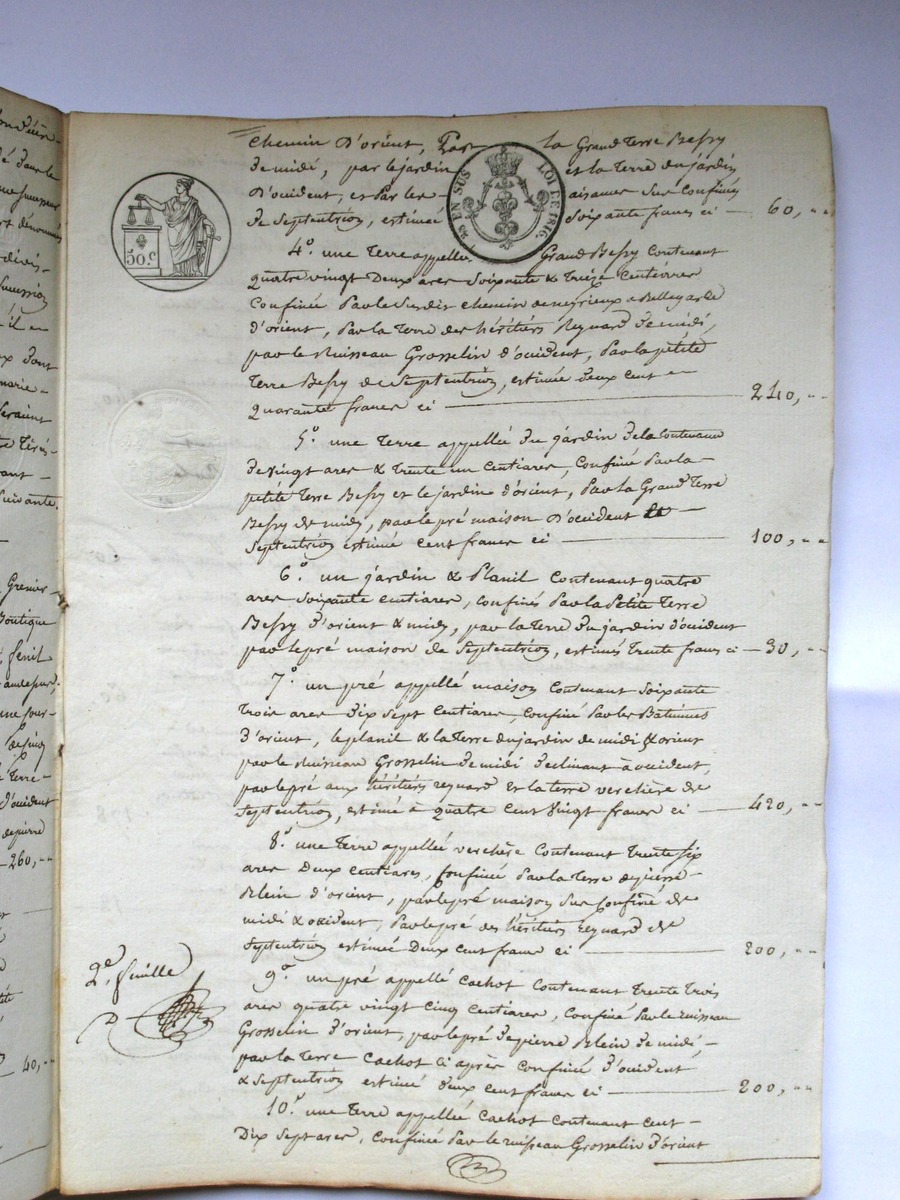 chemin D'orient, Par la Grand Terre Bessy
de midi, par le jardin et la Terre du jardin
D'occident, et Par les aisances sus confinés
de Septentrion, estimée Soixante francs ci — 60,
EN SUS LOI DE 1816.
50 c
4° une Terre appellée Grand Bessy contenant
quatre vingt Deux ares Soixante & Treize Centiares
Confinée Par le Susdit chemin de neyrieux a Bellegarde
d'orient, Par la Terre des héritiers Reynard de midi,
par le Ruisseau Grosselin d'occident, Par la petite
Terre Bessy de Septentrion, estimée deux cent
quarante francs ci — 240,
5° une Terre appellée du jardin de la Contenance
de vingt ares & Trente un Centiares, Confiné Par la
petite Terre Bessy et le jardin d'orient, Par la Grand Terre
Bessy de midi, par le pré maison D'occident et
Septentrion estimée cent francs ci — 100,
6° un jardin & Planil Contenant quatre
ares Soixante centiares, confinés Par la Petite Terre
Bessy d'orient & midi, par la Terre du jardin d'occident
par le pré maison de Septentrion, estimés Trente francs ci — 30,
7° un pré appellé maison Contenant Soixante
Trois ares Dix Sept Centiares, confiné Par les Batimens
d'orient, le planil & la Terre du jardin de midi & orient
par le Ruisseau Grosselin de midi declinant à occident,
par le pré aux héritiers reynard et la terre verchère de
Septentrion, estimé à quatre Cent Vingt francs ci — 420,
8° une Terre appellée verchère Contenant Trente Six
ares Deux Centiares, confinée Par la Terre de pierre
Blein d'orient, par le pré maison Sus Confiné de
midi & occident, Par le pré des héritiers reynard de
Septentrion estimée Deux cent francs ci — 200,
2e. feuille
9° un pré appellé Cachot Contenant Trente Trois
ares quatre vingt Cinq Centiares, Confiné Par le ruisseau
Grosselin d'orient, par le pré de pierre Blein de midi,
par la Terre Cachot ci après Confinée d'occident
& Septentrion estimé deux cent francs ci — 200,
10° une Terre appellée Cachot contenant cent
Dix Sept ares, Confinée Par le ruisseau Grosselin d'orient
260,
40,